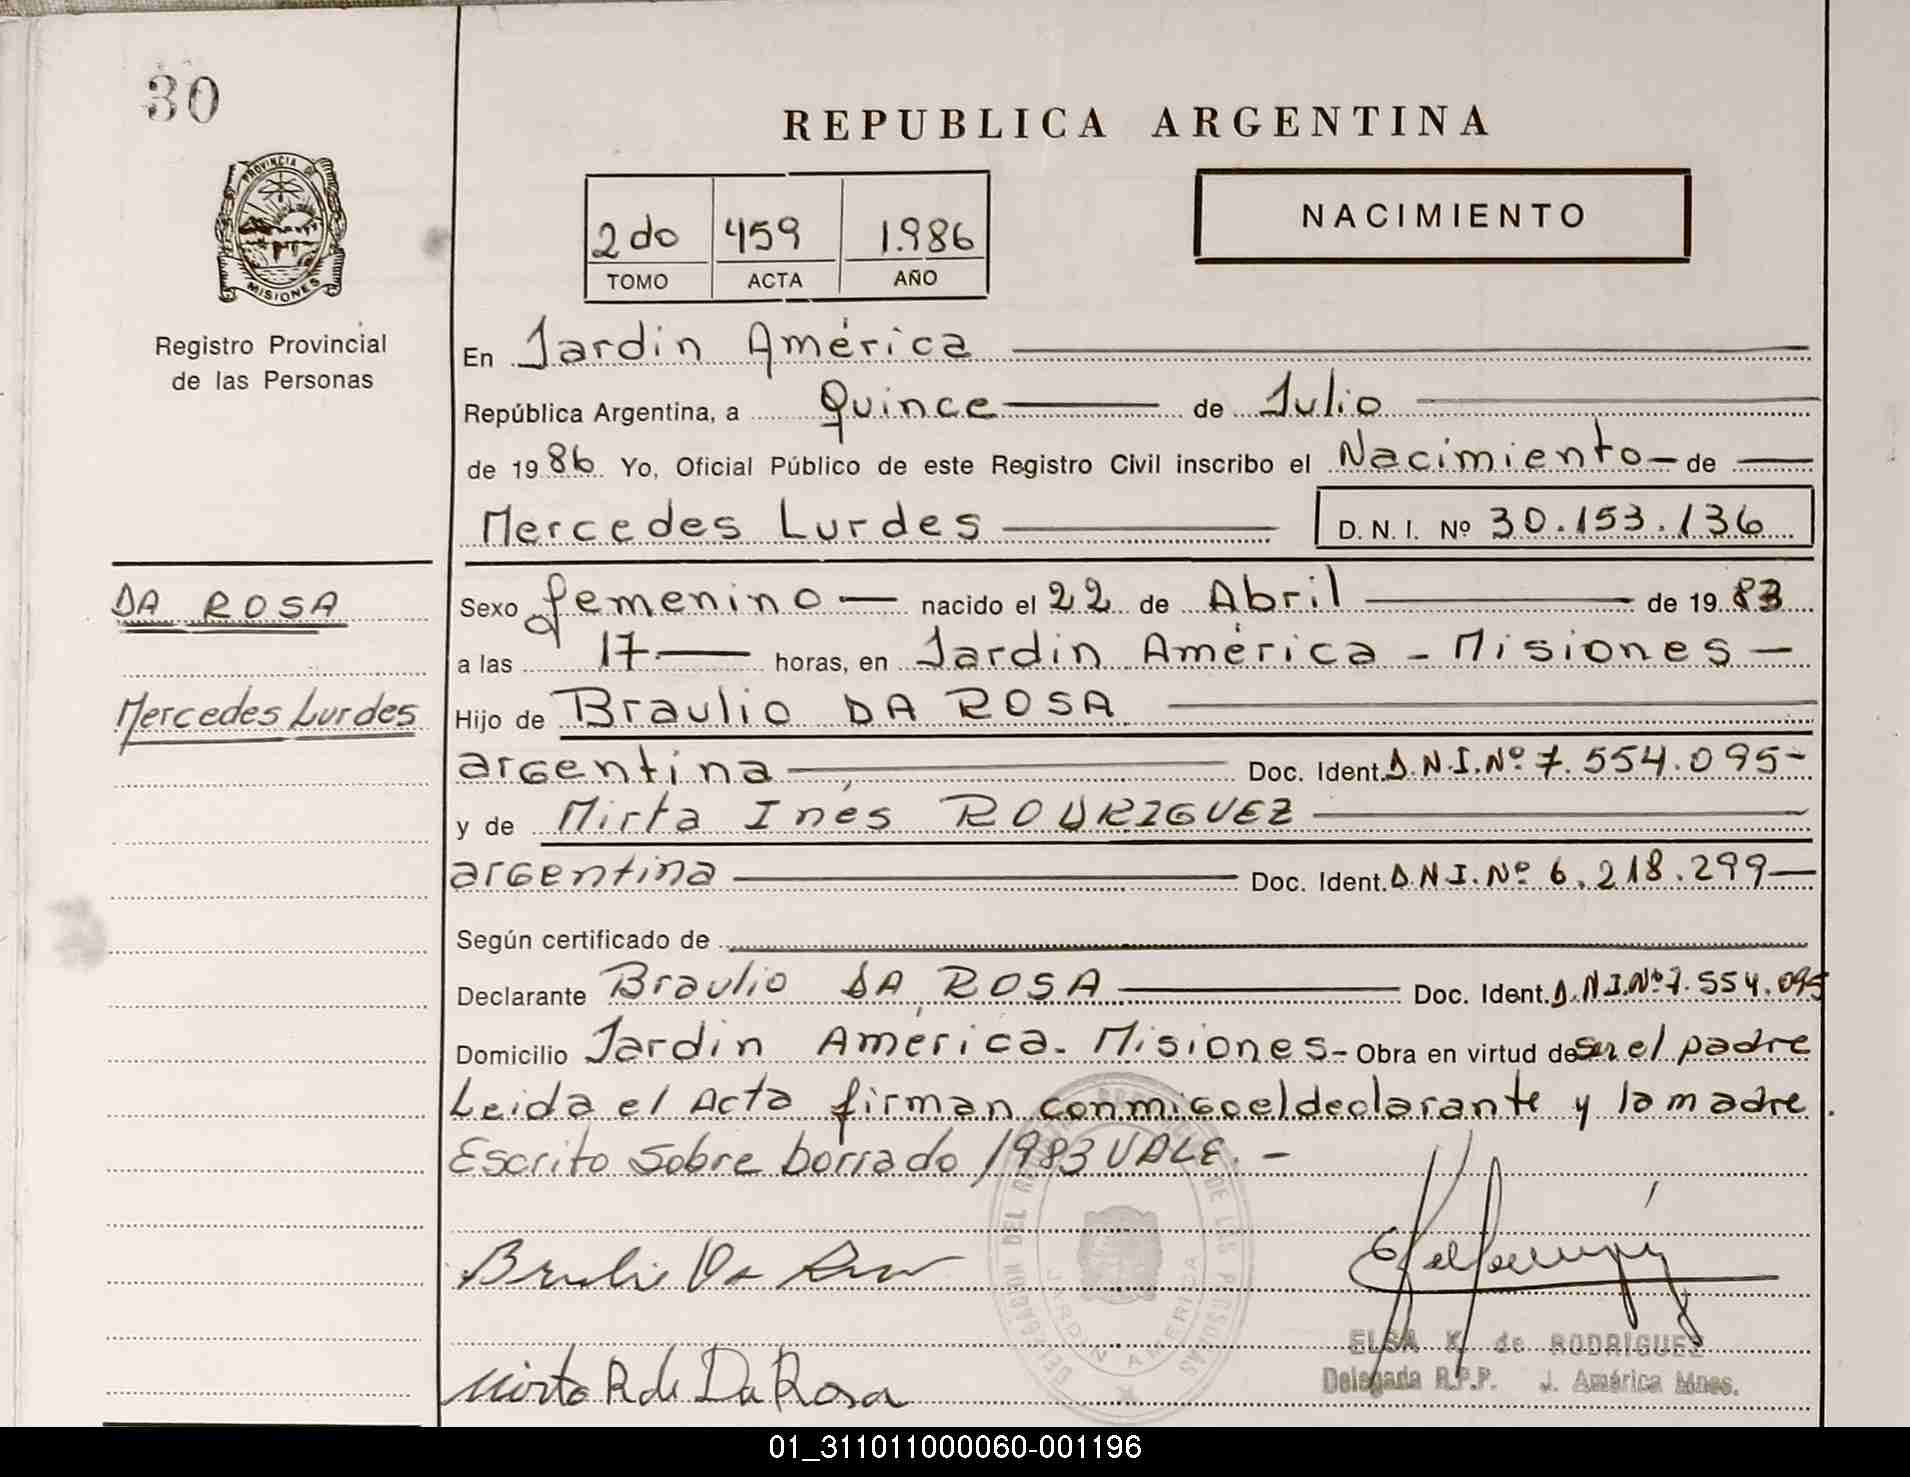 30
REPUBLICA ARGENTINA
PROVINCIA DE
MISIONES
Registro Provincial
de las Personas
2do 459 1.986
TOMO ACTA AÑO
NACIMIENTO
En Jardin América
República Argentina, a Quince de Julio
de 1986 Yo, Oficial Público de este Registro Civil inscribo el Nacimiento de
Mercedes Lurdes D. N. I. Nº 30.153.136
DA ROSA
Mercedes Lurdes
Sexo femenino nacido el 22 de Abril de 1983
a las 17 horas, en Jardin América - Misiones -
Hijo de Braulio DA ROSA
argentina Doc. Ident. D.N.I.Nº 7.554.095-
y de Mirta Inés RODRIGUEZ
argentina Doc. Ident. D.N.I.Nº 6.218.299-
Según certificado de
Declarante Braulio DA ROSA Doc. Ident. D.N.I.Nº 7.554.095
Domicilio Jardin América. Misiones.- Obra en virtud de ser el padre
Leida el Acta firman conmigo el declarante y la madre.
Escrito sobre borrado 1983 VALE. -
Braulio Da Rosa
Mirta R de Da Rosa
DELEGACION DEL REGISTRO PROVINCIAL DE LAS PERSONAS
JARDIN AMERICA
ELSA K. de RODRIGUEZ
Delegada R.P.P. J. América Mnes.
01_311011000060-001196